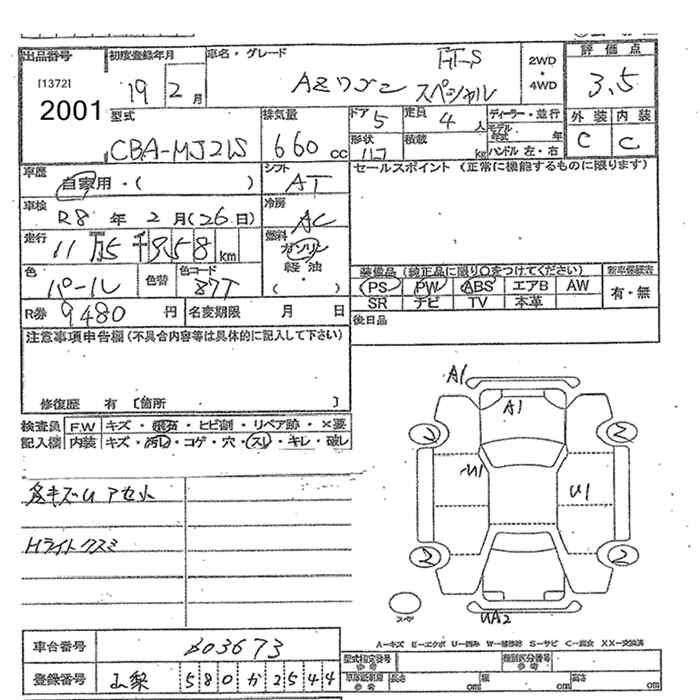 出品番号 初度登録年月 車名・グレード 評価点
[1372] 19 2月 AZワゴン FT-S スペシャル 2WD・4WD 3.5
2001 型式 排気量 ドア 5 定員 4人 ディーラー・並行 外装 内装
CBA-MJ21S 660cc 形状 積載 kg モデル年式 年 ハンドル 左・右 C C
車歴 自家用・( ) シフト AT セールスポイント(正常に機能するものに限ります)
車検 R8年2月(26日) 冷房 AC
走行 11万5千958km 燃料 ガソリン・軽油・( )
色 パール 色替 色コード 37T 装備品(純正品に限り○をつけてください) 新車保証書
PS PW ABS エアB AW 有・無
SR ナビ TV 本革
R券 9480円 名変期限 月 日 後日品
注意事項申告欄(不具合内容等は具体的に記入して下さい)
修復歴 有 [箇所 ]
検査員 F.W キズ・飛石・ヒビ割・リペア跡・×要
記入欄 内装 キズ・汚れ・コゲ・穴・スレ・キレ・破レ
A1
A1
2 2
U1 U1
多キズU アセ小
Hライトクスミ
2 2
スペヤ
UA2
A-キズ E-エクボ U-凹み W-補修跡 S-サビ C-腐食 XX-交換済
車台番号 803673 型式指定番号 参考 類別区分番号 参考
登録番号 山梨 580 か 2544 車両証明書 参考 長さ cm 幅 cm 高さ cm